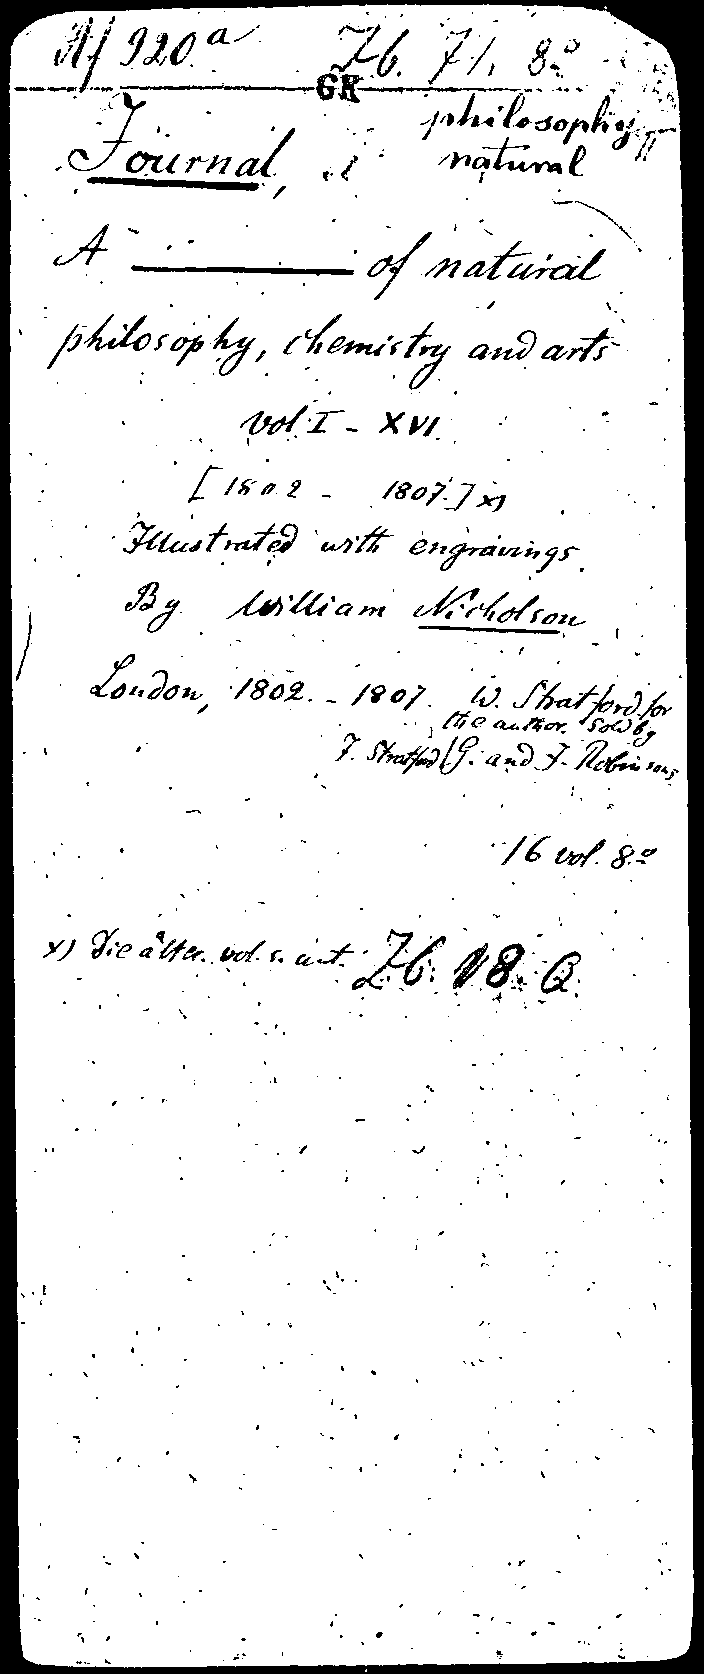 Af 920 a Zb. 71. 8º
GK
philosophy
Journal, natural
A ——— of natural
philosophy, chemistry and arts
vol I - XVI.
[1802 - 1807.] x)
Illustrated with engravings.
By William Nicholson
London, 1802. - 1807. W. Stratford for
the author. Sold by
J. Stratford / G. and J. Robinsons
16 vol. 8º
x) Die älter. vol. s. unt. Zb. 18. Q.